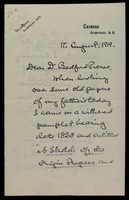 12 August, 1919.
Dear Dr Bedford Pierce,
When looking
over some old papers of
my father's today
I came on a
pamphlet bearing
date 1828 and entitled
"A Sketch of the
Origin Progress and